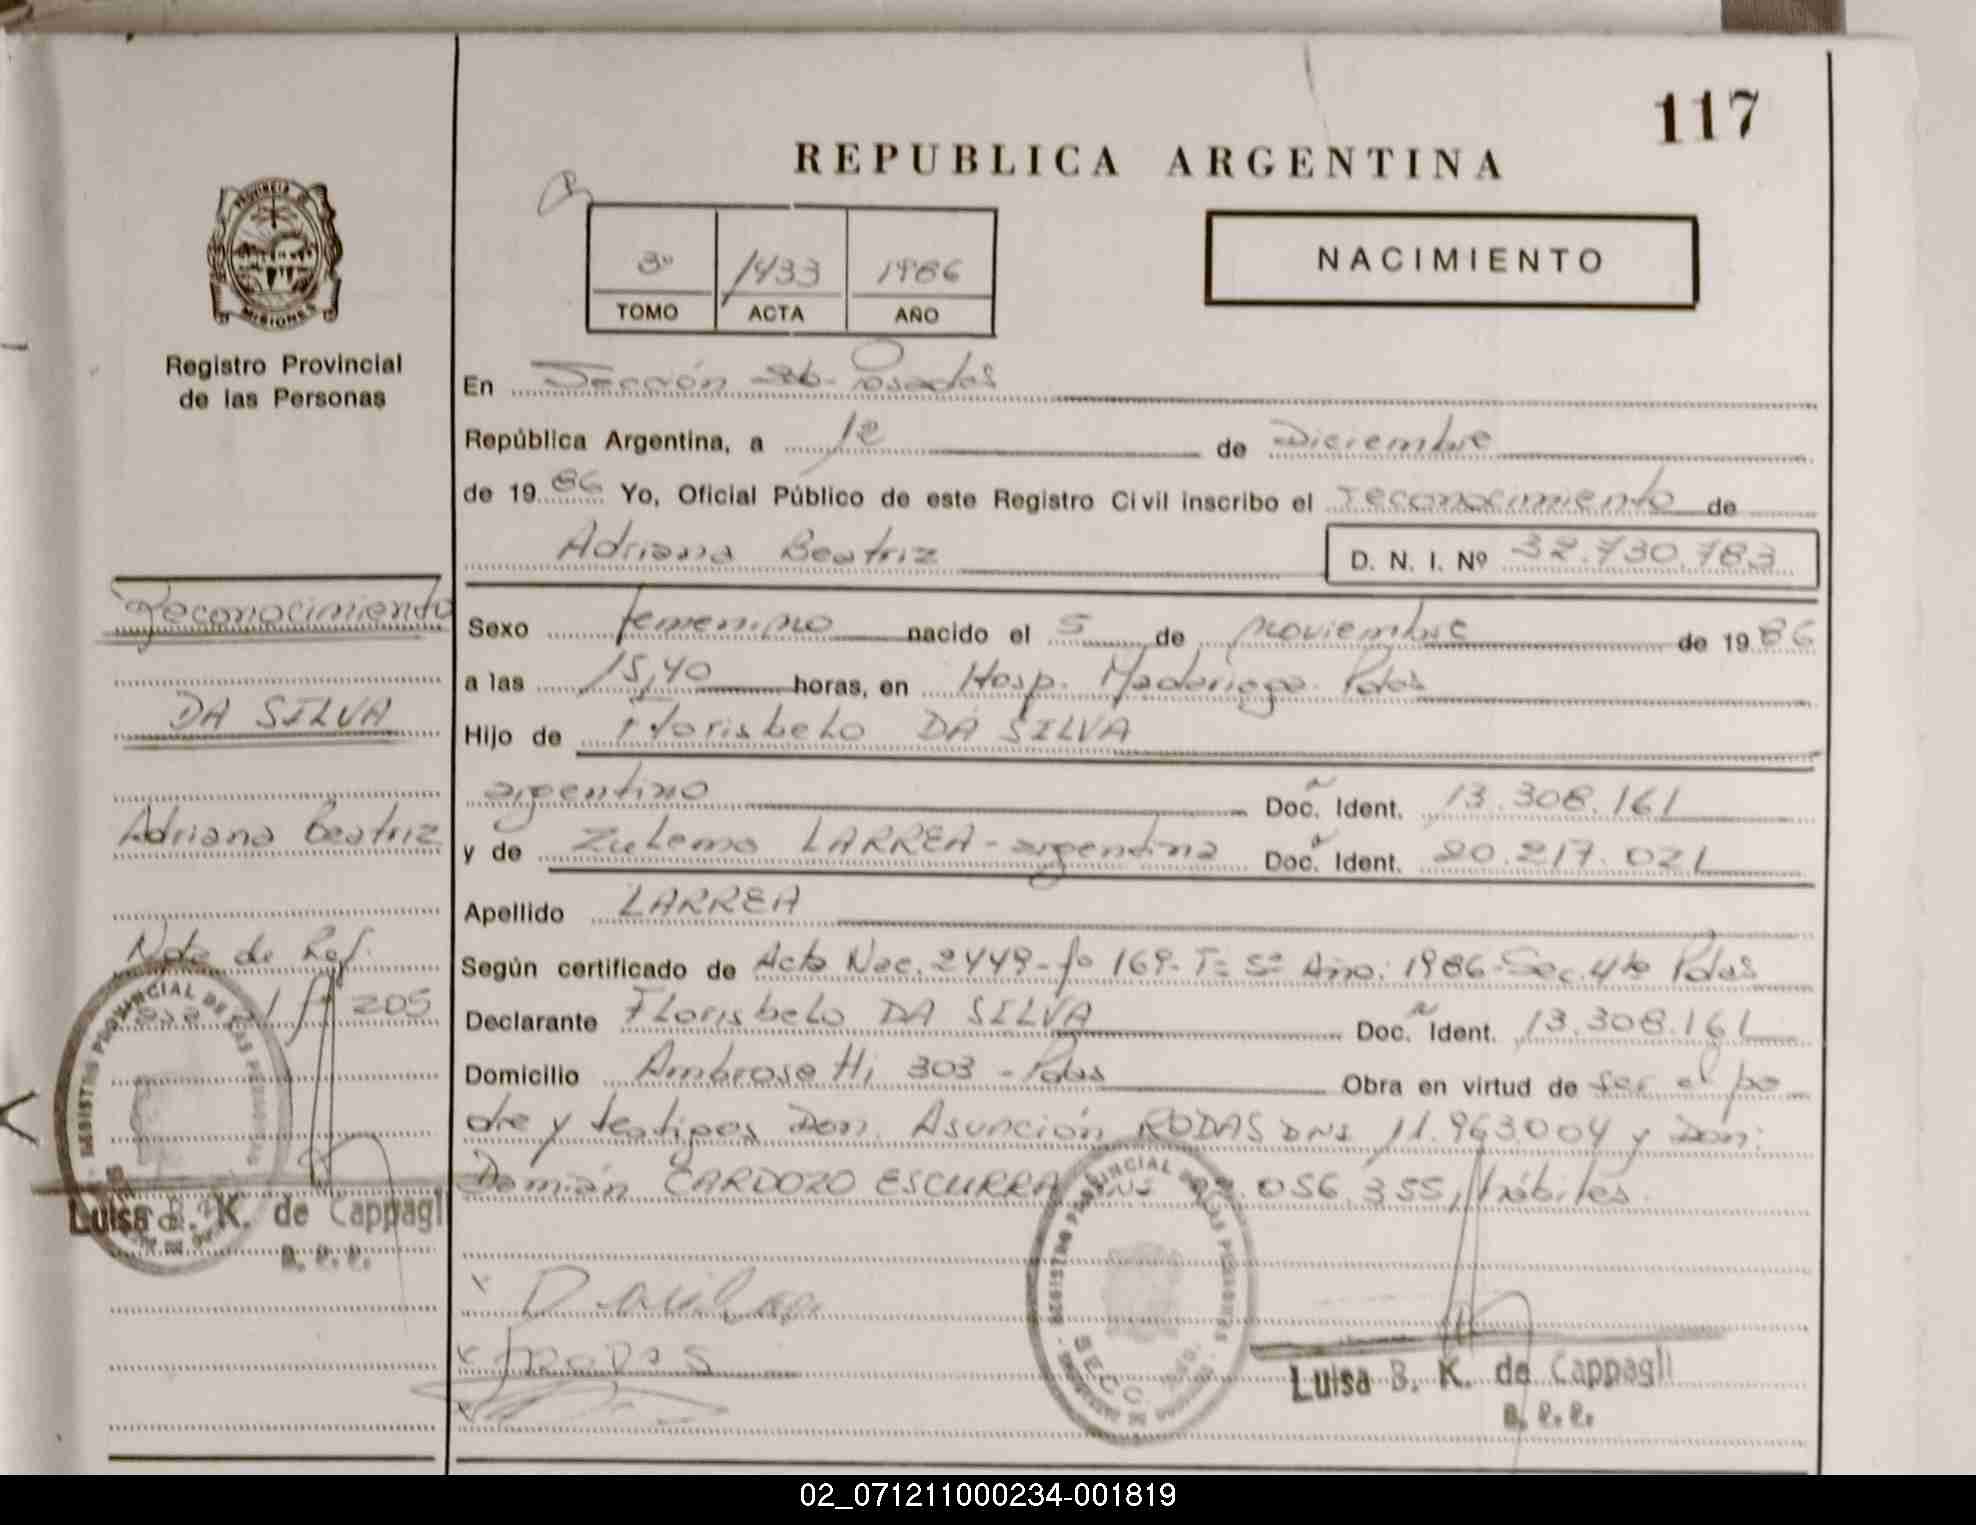 117
REPUBLICA ARGENTINA
PROVINCIA DE
MISIONES
Registro Provincial
de las Personas
3º 1433 1986
TOMO ACTA AÑO
NACIMIENTO
En Sección Posadas
República Argentina, a 12 de Diciembre
de 1986 Yo, Oficial Público de este Registro Civil inscribo el reconocimiento de
Adriana Beatriz D. N. I. Nº 32.730.783
Reconocimiento
DA SILVA
Adriana Beatriz
Nota de Ref.
205
Luisa B. K. de Cappagli
Sexo femenino nacido el 5 de noviembre de 1986
a las 15,40 horas, en Hosp. Madariaga Pdas
Hijo de Florisbelo DA SILVA
argentino Doc. Ident. 13.308.161
y de Zulema LARREA - argentina Doc. Ident. 20.217.021
Apellido LARREA
Según certificado de Acta Nac. 2449 - fº 169 - Tº 5º Año: 1986 - Sec. 4ta Pdas
Declarante Florisbelo DA SILVA Doc. Ident. 13.308.161
Domicilio Ambrose 303 - Pdas Obra en virtud de ser el pa
dre y testigos Don. Asunción RODAS DNI 11.963.004 y Don:
Damián CARDOZO ESCURRA DNI 056.355, hábiles.
REGISTRO PROVINCIAL DE LAS PERSONAS
RODAS
Luisa B. K. de Cappagli
02_071211000234-001819